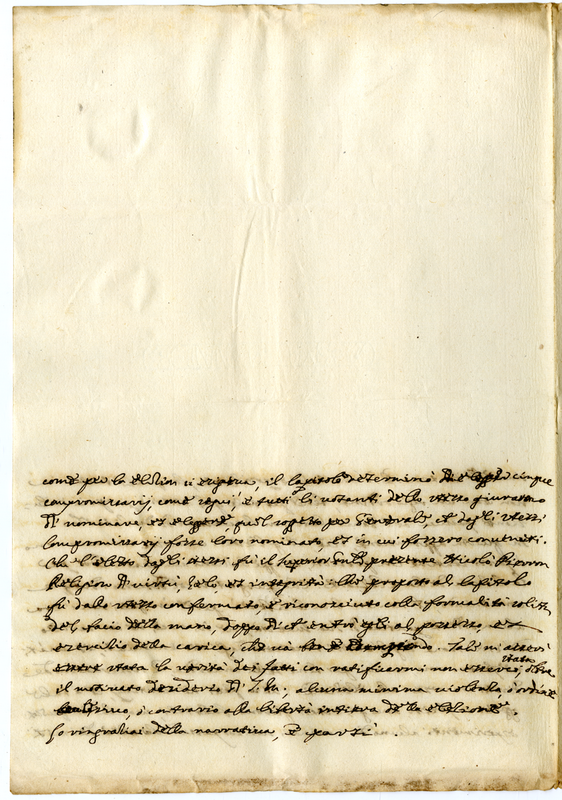 come per la elezion si ergeva, il Capitolo determinò
compromissarij, come seguì, e tutti li votanti dello stesso giurarono
di nominare, et elegere quel sogetto per Generale, che dagli stessi
Compromissarij fosse loro nominato, et in cui fossero convenuti.
Che l'eletto dagli stessi fù il Superior presente Nicolò
Religioso di virtù, zelo, et integrità: Che proposto al Capitolo
fù dallo stesso confermato, e riconosciuto colla formalità solita
del bacio della mano, doppo di che entrò egli al possesso, et
esercitio della carica, che và Tale mi asserì
essere stata la verità dei fatti con ratificarmi non esservi stata, oltre
il motivato desiderio di S. M., alcuna minima violenza,
ò contrario alla libertà intiera della elezione.
Lo ringratiai della narrativa, e partì.